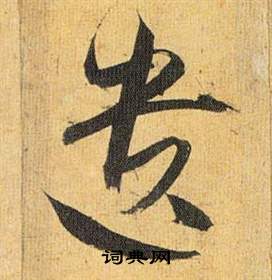 遗
词典网